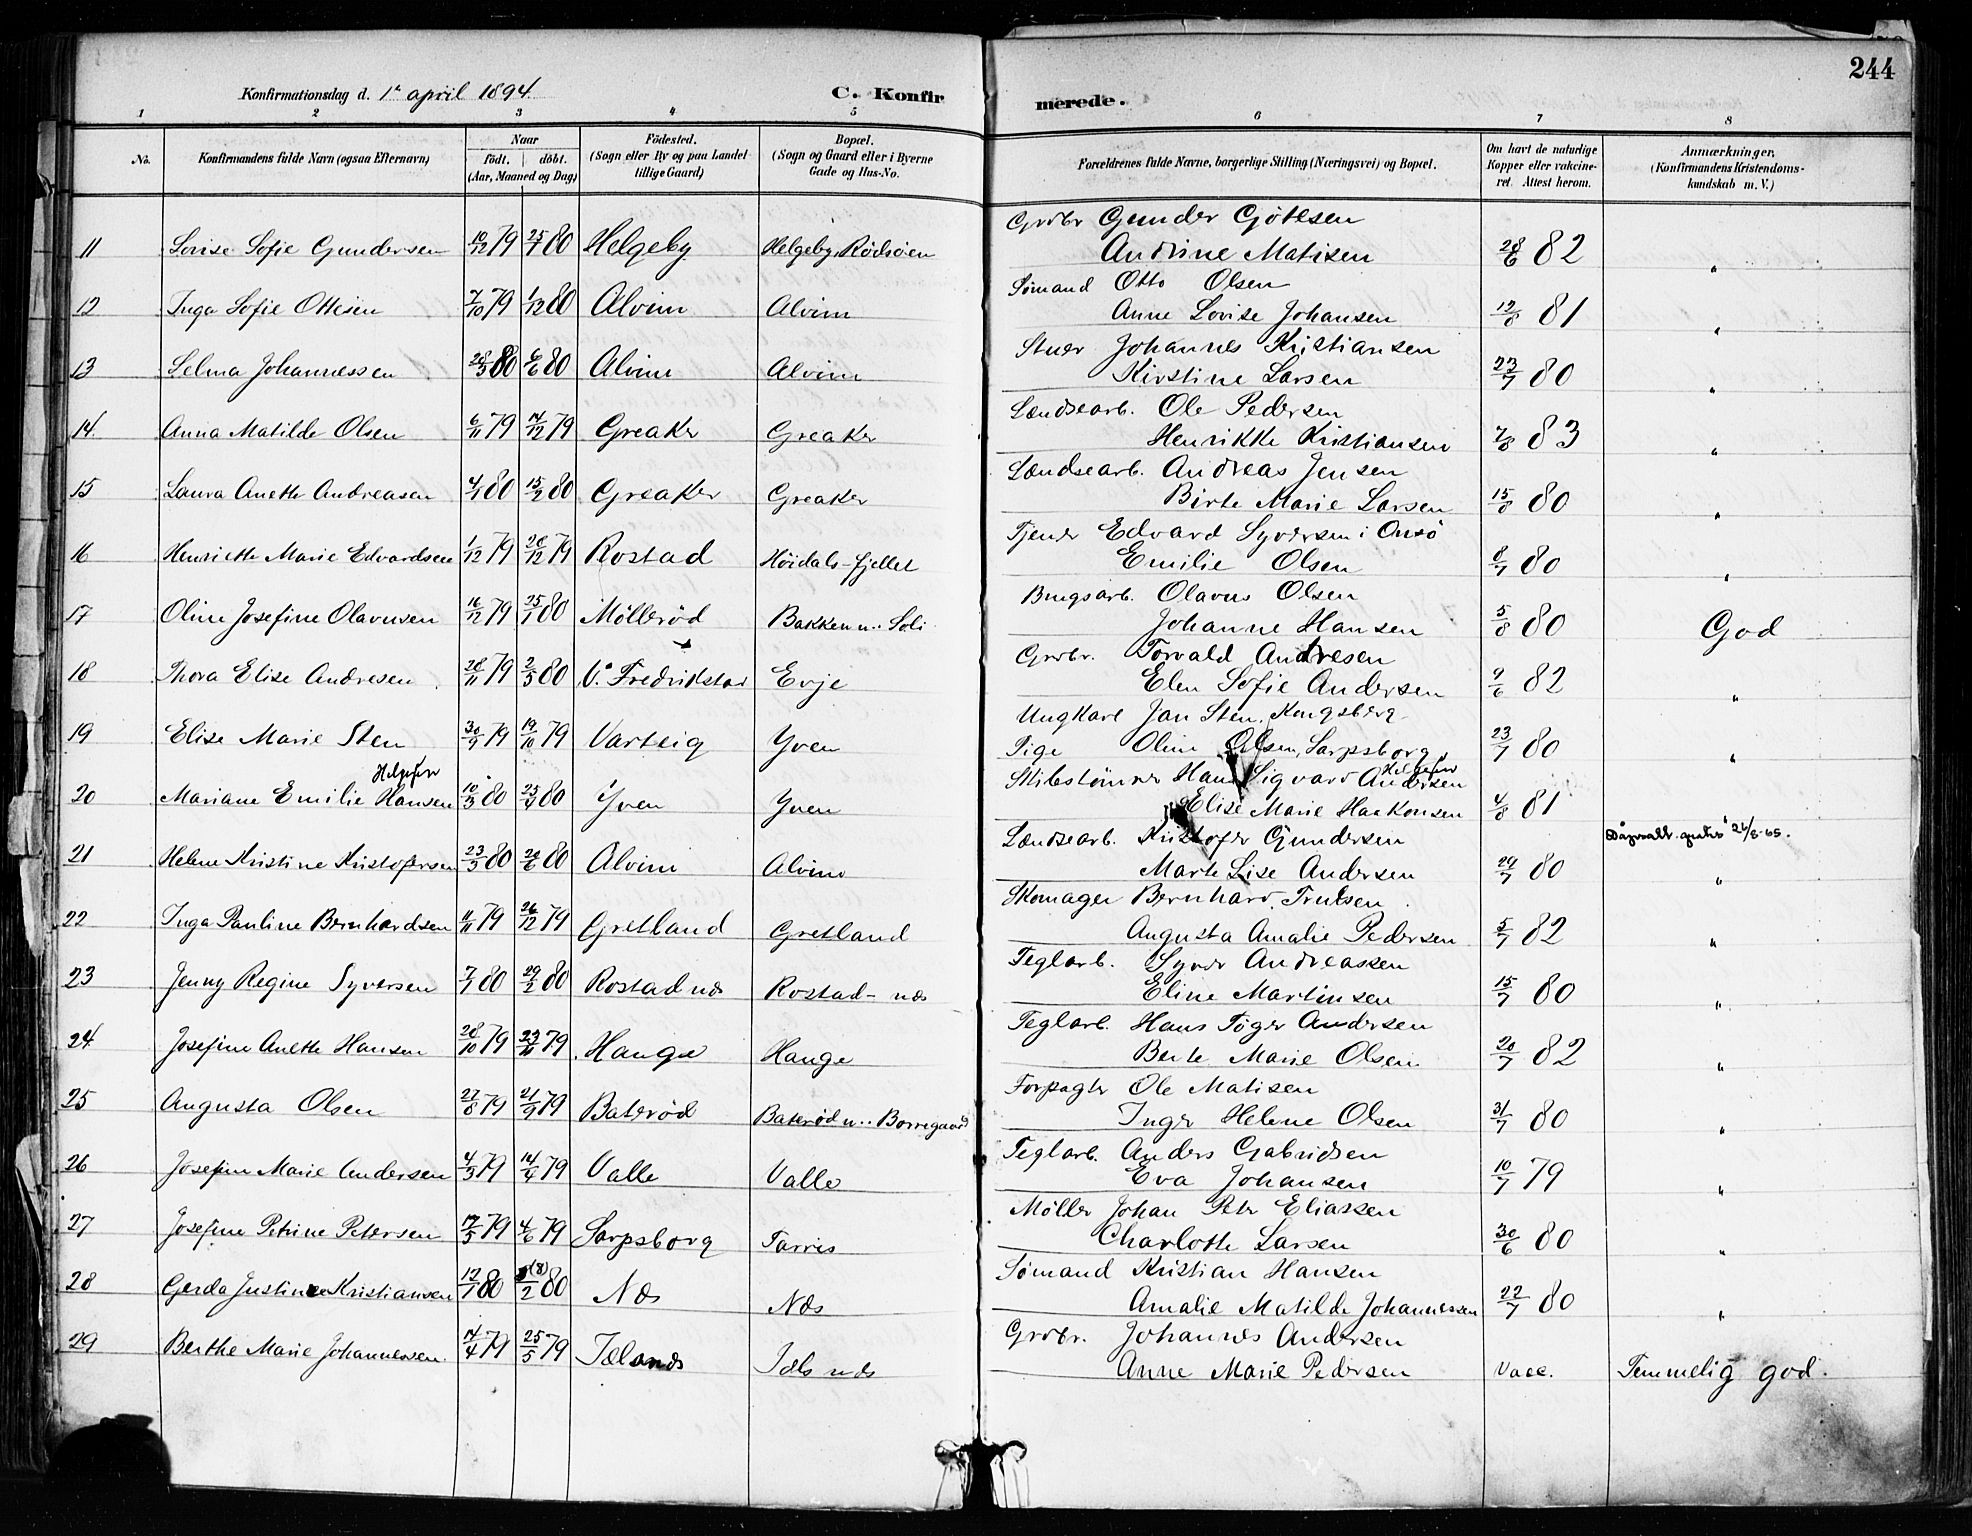 244
Konfirmationsdag d. 1ª april 1894. C. Konfirmerede.
1 2 3 4 5 6 7 8
No. Konfirmandens fulde Navn (ogsaa Efternavn) Naar født. døbt. (Aar, Maaned og Dag) Födested. (Sogn eller By og paa Landet tillige Gaard) Bopæl. (Sogn og Gaard eller i Byerne Gade og Hus-No. Forældrenes fulde Navne, borgerlige Stilling (Næringsvei) og Bopæl. Om havt de naturlige Kopper eller vakcineret. Attest herom. Anmærkninger, (Konfirmandens Kristendomskundskab m. V.)
Grdbr Gunder Gjötesen
11 Lovise Sofie Gundersen 10/12 79 25/1 80 Helgeby Helgeby, Rödsöen Andrine Matisen 28/6 82 "
Sömand Otto Olsen
12 Inga Sofie Ottesen 7/10 79 1/12 80 Alvim Alvim Anne Lovise Johansen 12/8 81 "
Stuer Johannes Kristiansen
13 Selma Johannessen 28/3 80 6/6 80 Alvim Alvim Kirstine Larsen 23/7 80 "
Lændsearb. Ole Pedersen
14 Anna Matilde Olsen 6/11 79 14/12 79 Greaker Greaker Henrikke Kristiansen 7/8 83 "
Lændsearb. Andreas Jensen
15 Laura Anette Andreasen 4/1 80 15/2 80 Greaker Greaker Birte Marie Larsen 15/8 80 "
Tjener Edvard Syversen i Onsö
16 Henriette Marie Edvardsen 1/12 79 26/12 79 Rostad Höidals-fjellet Emilie Olsen 8/7 80 "
Brugsarb. Olavus Olsen
17 Oline Josefine Olavusen 16/12 79 25/1 80 Mölleröd Bakken u. Soli Johanne Hansen 5/8 80 God
Grdbr. Torvald Andresen
18 Thora Elise Andresen 28/11 79 2/5 80 V. Fredrikstad Evje Elen Sofie Andersen 9/6 82 "
Ungkarl Jan Sten, Kongsberg
19 Elise Marie Sten 30/9 79 19/10 79 Varteig Yven Pige Oline Olsen, Sarpsborg 23/7 80 "
Helgesen Hans Sigvard Andersen
20 Mariane Emilie Hansen 10/3 80 25/4 80 Yven Yven Elise Marie Haakonsen 4/8 81 "
Lændsearb. Kristofer Gundersen 26/8-65.
21 Helene Kristine Kristofersen 23/3 80 20/6 80 Alvim Alvim Marte Lise Andersen 29/7 80 "
Skomager Bernhard Trulsen
22 Inga Pauline Bernhardsen 11/11 79 26/12 79 Gretland Gretland Augusta Amalie Pedersen 5/7 82 "
Teglarb. Syver Andreassen
23 Jenny Regine Syversen 7/1 80 29/2 80 Rostad næs Rostad-næs Eline Martinsen 15/7 80 "
Teglarb. Hans Töger Andersen
24 Josefine Anette Hansen 28/10 79 23/11 79 Hauge Hauge Berte Marie Olsen 20/7 82 "
Forpagter Ole Matisen
25 Augusta Olsen 27/8 79 21/9 79 Bateröd Bateröd u. Borregaard Inger Helene Olsen 31/7 80 "
Teglarb. Anders Gabrielsen
26 Josefine Marie Andersen 4/3 79 14/4 79 Valle Valle Eva Johansen 10/7 79 "
Möller Johan Peter Eliassen
27 Josefine Petrine Petersen 12/3 79 4/6 79 Sarpsborg Tarris Charlotte Larsen 30/6 80 "
Sömand Kristian Hansen
28 Gerda Justine Kristiansen 12/1 80 (8)/2 80 Næs Næs Amalie Matilde Johannessen 22/7 80 "
Grdbr. Johannes Andersen
29 Berthe Marie Johannessen. 14/4 79 25/5 79 Anne Marie Pedersen Vacc. Temmelig god.